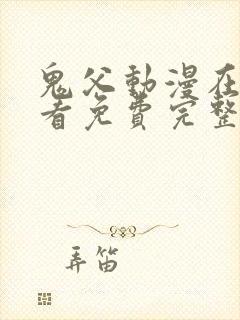 鬼父動漫在
看免費完整
弄笛